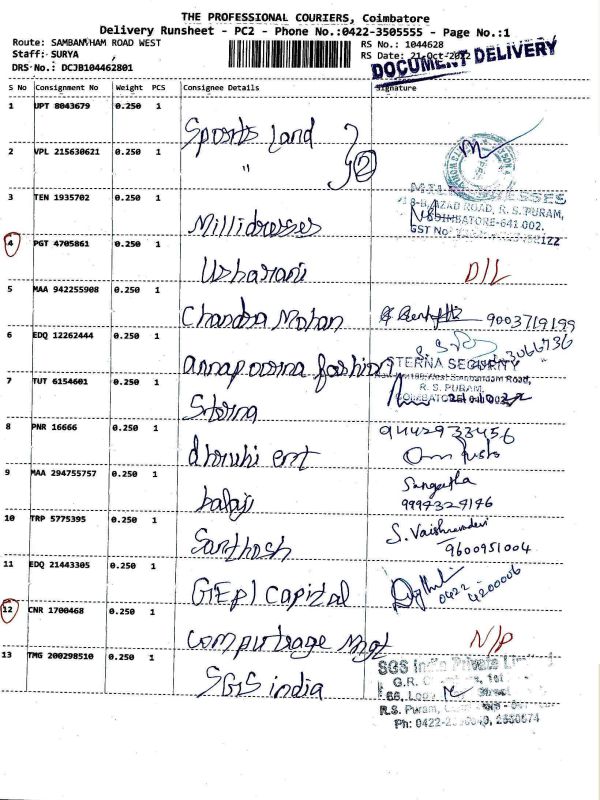 THE PROFESSIONAL COURIERS, Coimbatore
Delivery Runsheet - PC2 - Phone No.:0422-3505555 - Page No.:1
Route: SAMBANTHAM ROAD WEST RS No.: 1044628
Staff: SURYA RS Date: 21-Oct-2012
DRS No.: DCJB104462801 DOCUMENT DELIVERY
S No Consignment No Weight PCS Consignee Details Signature
1 UPT 8043679 0.250 1 Sports land
2 VPL 215630621 0.250 1 " 2
3 TEN 1935702 0.250 1 Millidresses
AZAD ROAD, R. S. PURAM,
COIMBATORE-641 002.
GST No
4 PGT 4705861 0.250 1 Usharani D/L
5 MAA 942255908 0.250 1 Chandra Mohan 9003719199
6 EDQ 12262444 0.250 1 annapoorna fashion
7 TUT 6154601 0.250 1 Sterna STERNA SECURITY
Road,
R. S. PURAM,
COIMBATORE
8 PNR 16666 0.250 1 dhruhi ent 9442933456
9 MAA 294755757 0.250 1 balaji Sangeetha
9994329196
10 TRP 5775395 0.250 1 Santhosh S. Vaishnavadevi
9600951004
11 EDQ 21443305 0.250 1 GEPL Capital 0422 4200006
12 CNR 1700468 0.250 1 Computrage Mgt N/P
13 TMG 200298510 0.250 1 SGS india SGS India Private Limited
G.R.
R.S. Puram,